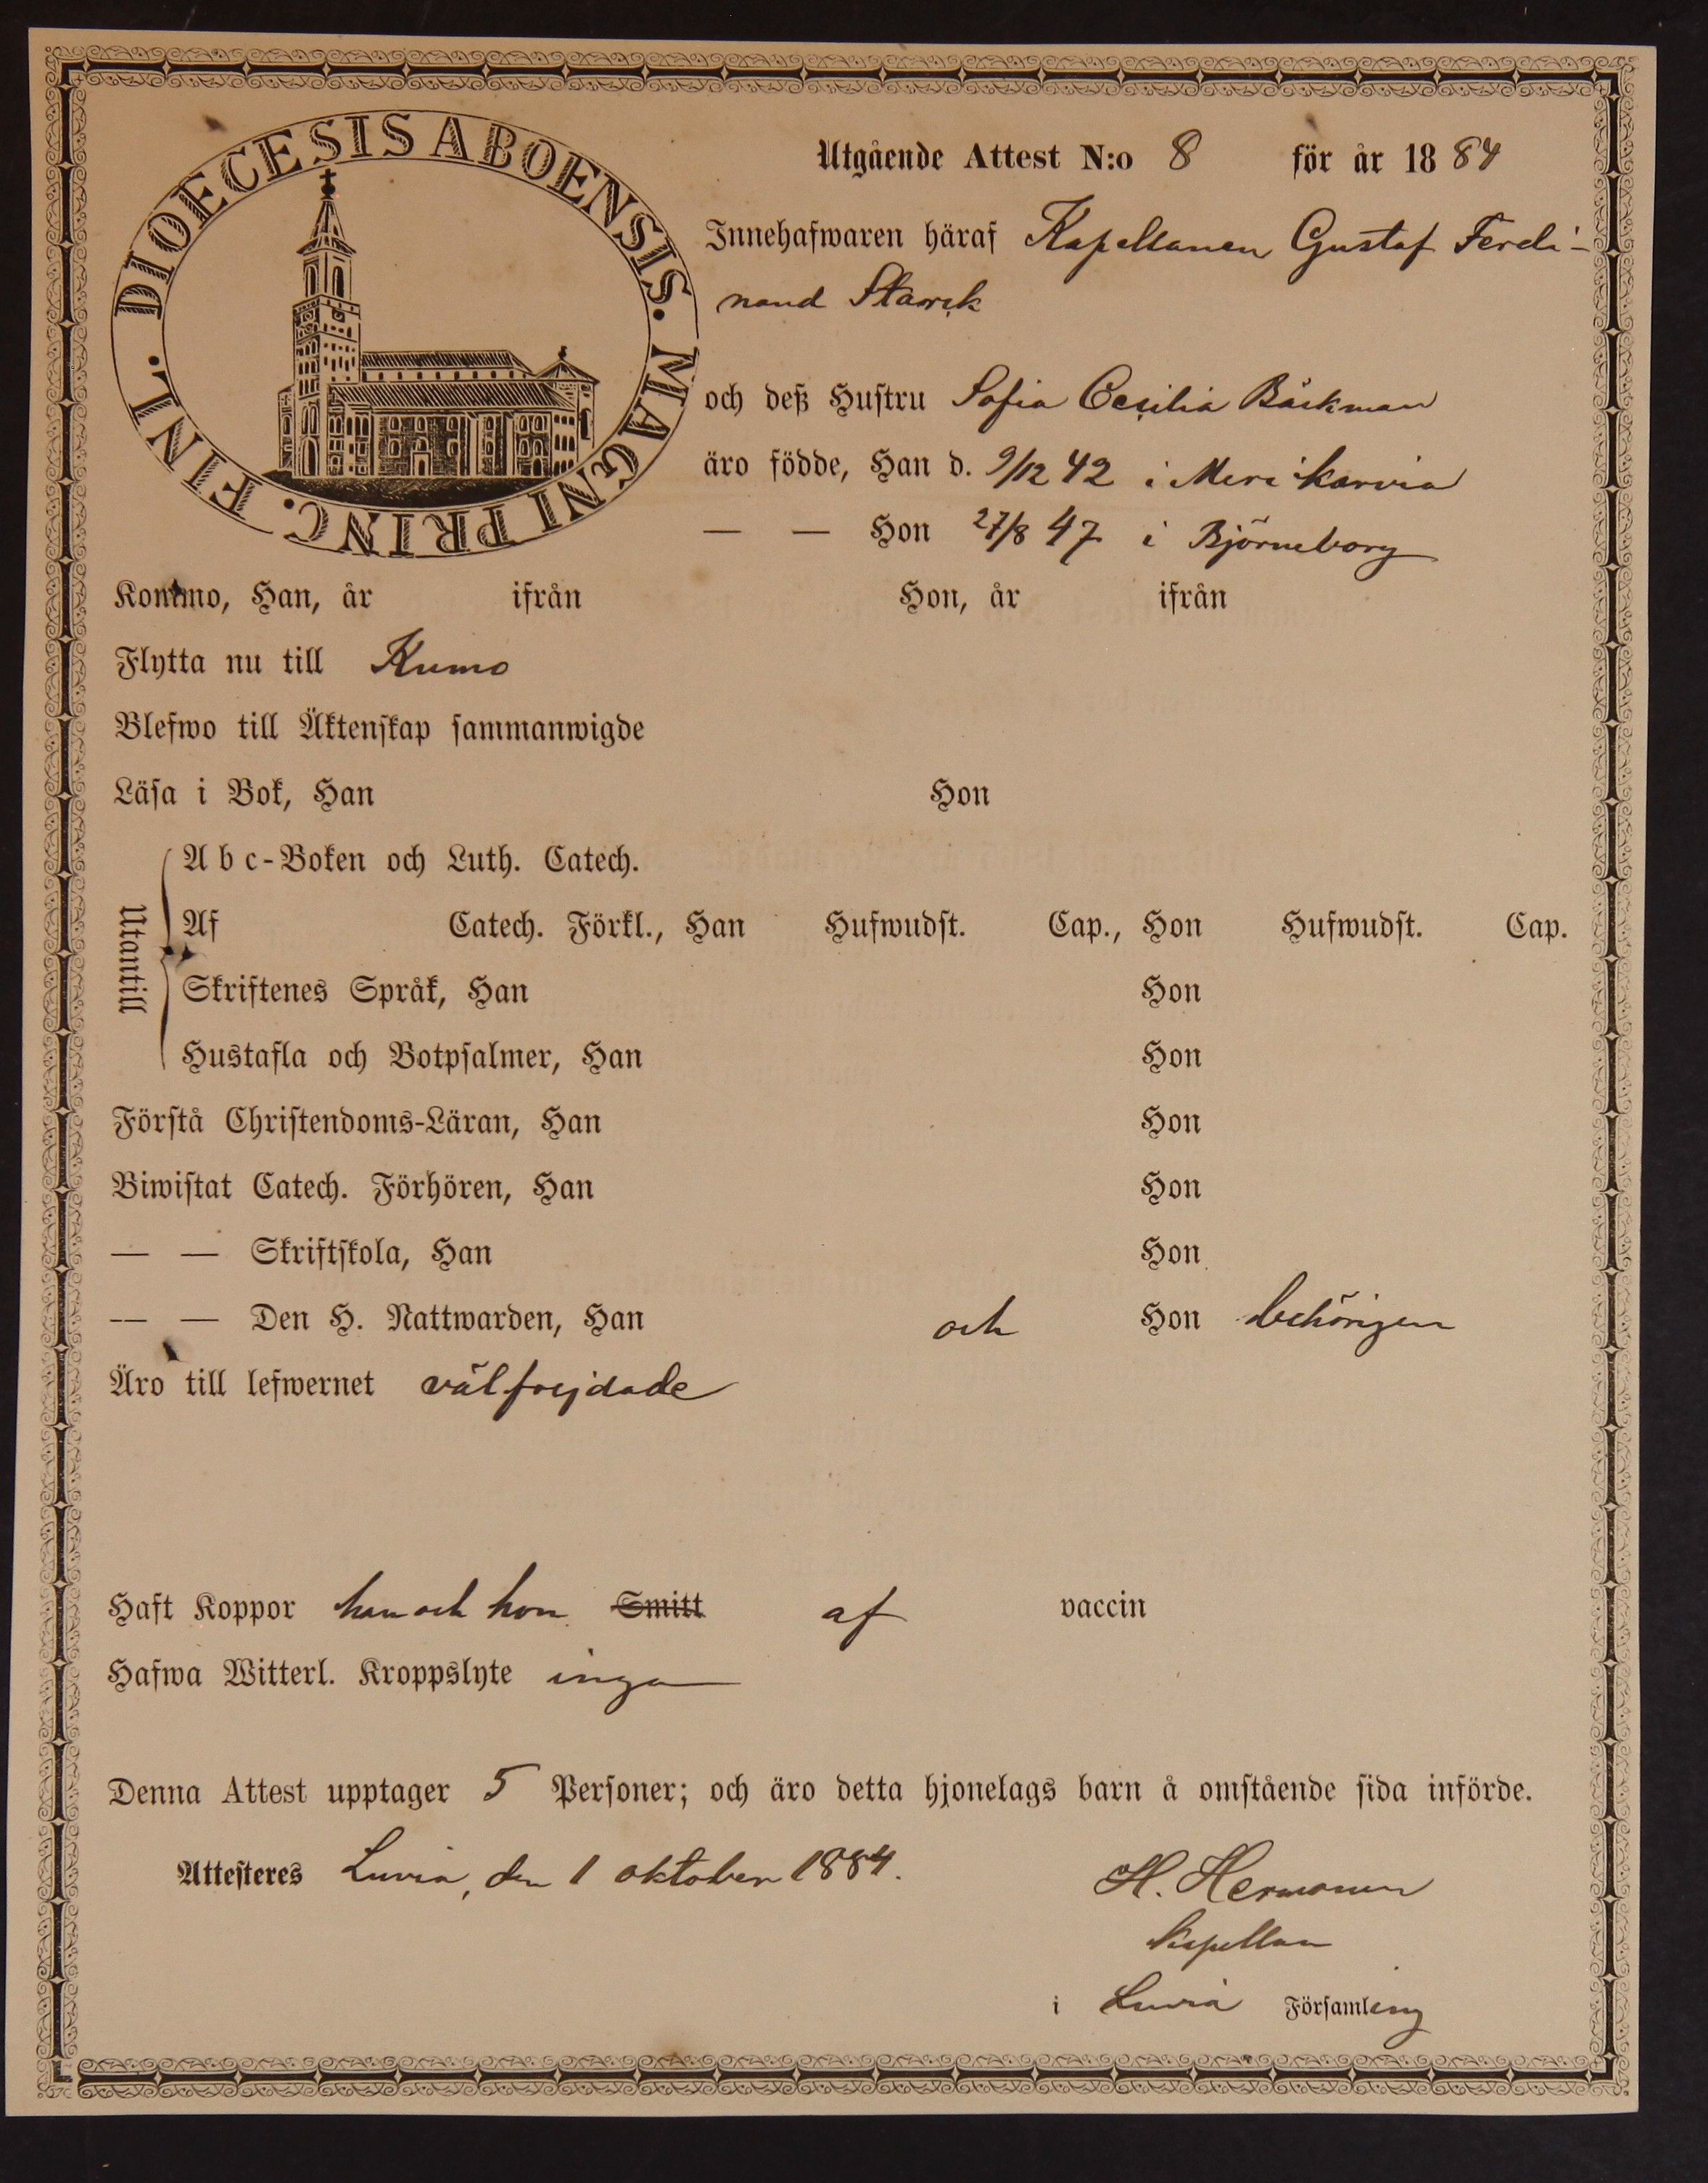 DIOECESIS ABOENSIS. MAGNI PRINC. FINL.
Utgående Attest N:o 8 för år 1884
Innehafwaren häraf Kapellanen Gustaf Ferdi-
nand Starck
och deß Hustru Sofia Cecilia Bäckman
äro födde, Han d. 9/12 42 i Merikarvia
— — Hon 27/8 47 i Björneborg
Kommo, Han, år ifrån Hon, år ifrån
Flytta nu till Kumo
Blefwo till Äktenskap sammanwigde
Läsa i Bok, Han Hon
Utantill
Abc-Boken och Luth. Catech.
Af Catech. Förkl., Han Hufwudst. Cap., Hon Hufwudst. Cap.
Skriftenes Språk, Han Hon
Hustafla och Botpsalmer, Han Hon
Förstå Christendoms-Läran, Han Hon
Biwistat Catech. Förhören, Han Hon
— — Skriftskola, Han Hon
— — Den H. Nattwarden, Han och Hon behörigen
Äro till lefwernet välfrejdade
Haft Koppor han och hon Smitt af vaccin
Hafwa Witterl. Kroppslyte inga
Denna Attest upptager 5 Personer; och äro detta hjonelags barn å omstående sida införde.
Attesteres Luvia, den 1 oktober 1884.
H. Hermonen
Kapellan
i Luvia Församling